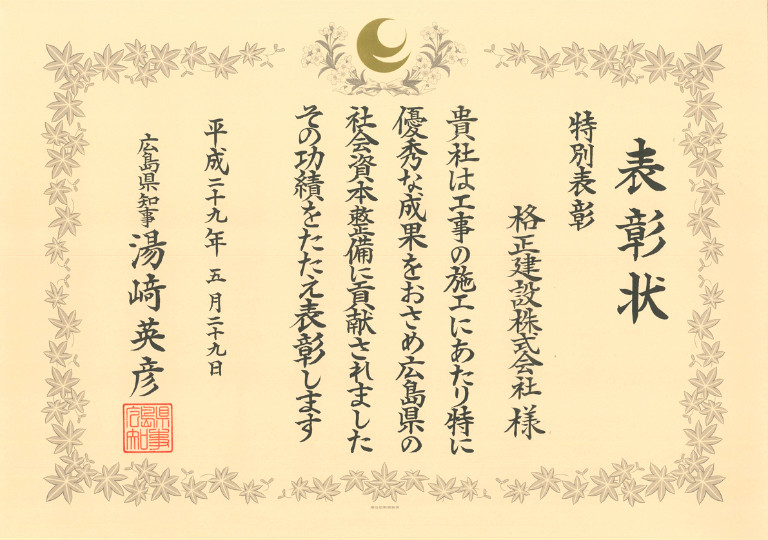 表彰状
特別表彰
格正建設株式会社 様
貴社は工事の施工にあたり特に
優秀な成果をおさめ広島県の
社会資本整備に貢献されました
その功績をたたえ表彰します
平成二十九年五月二十九日
広島県知事 湯﨑英彦